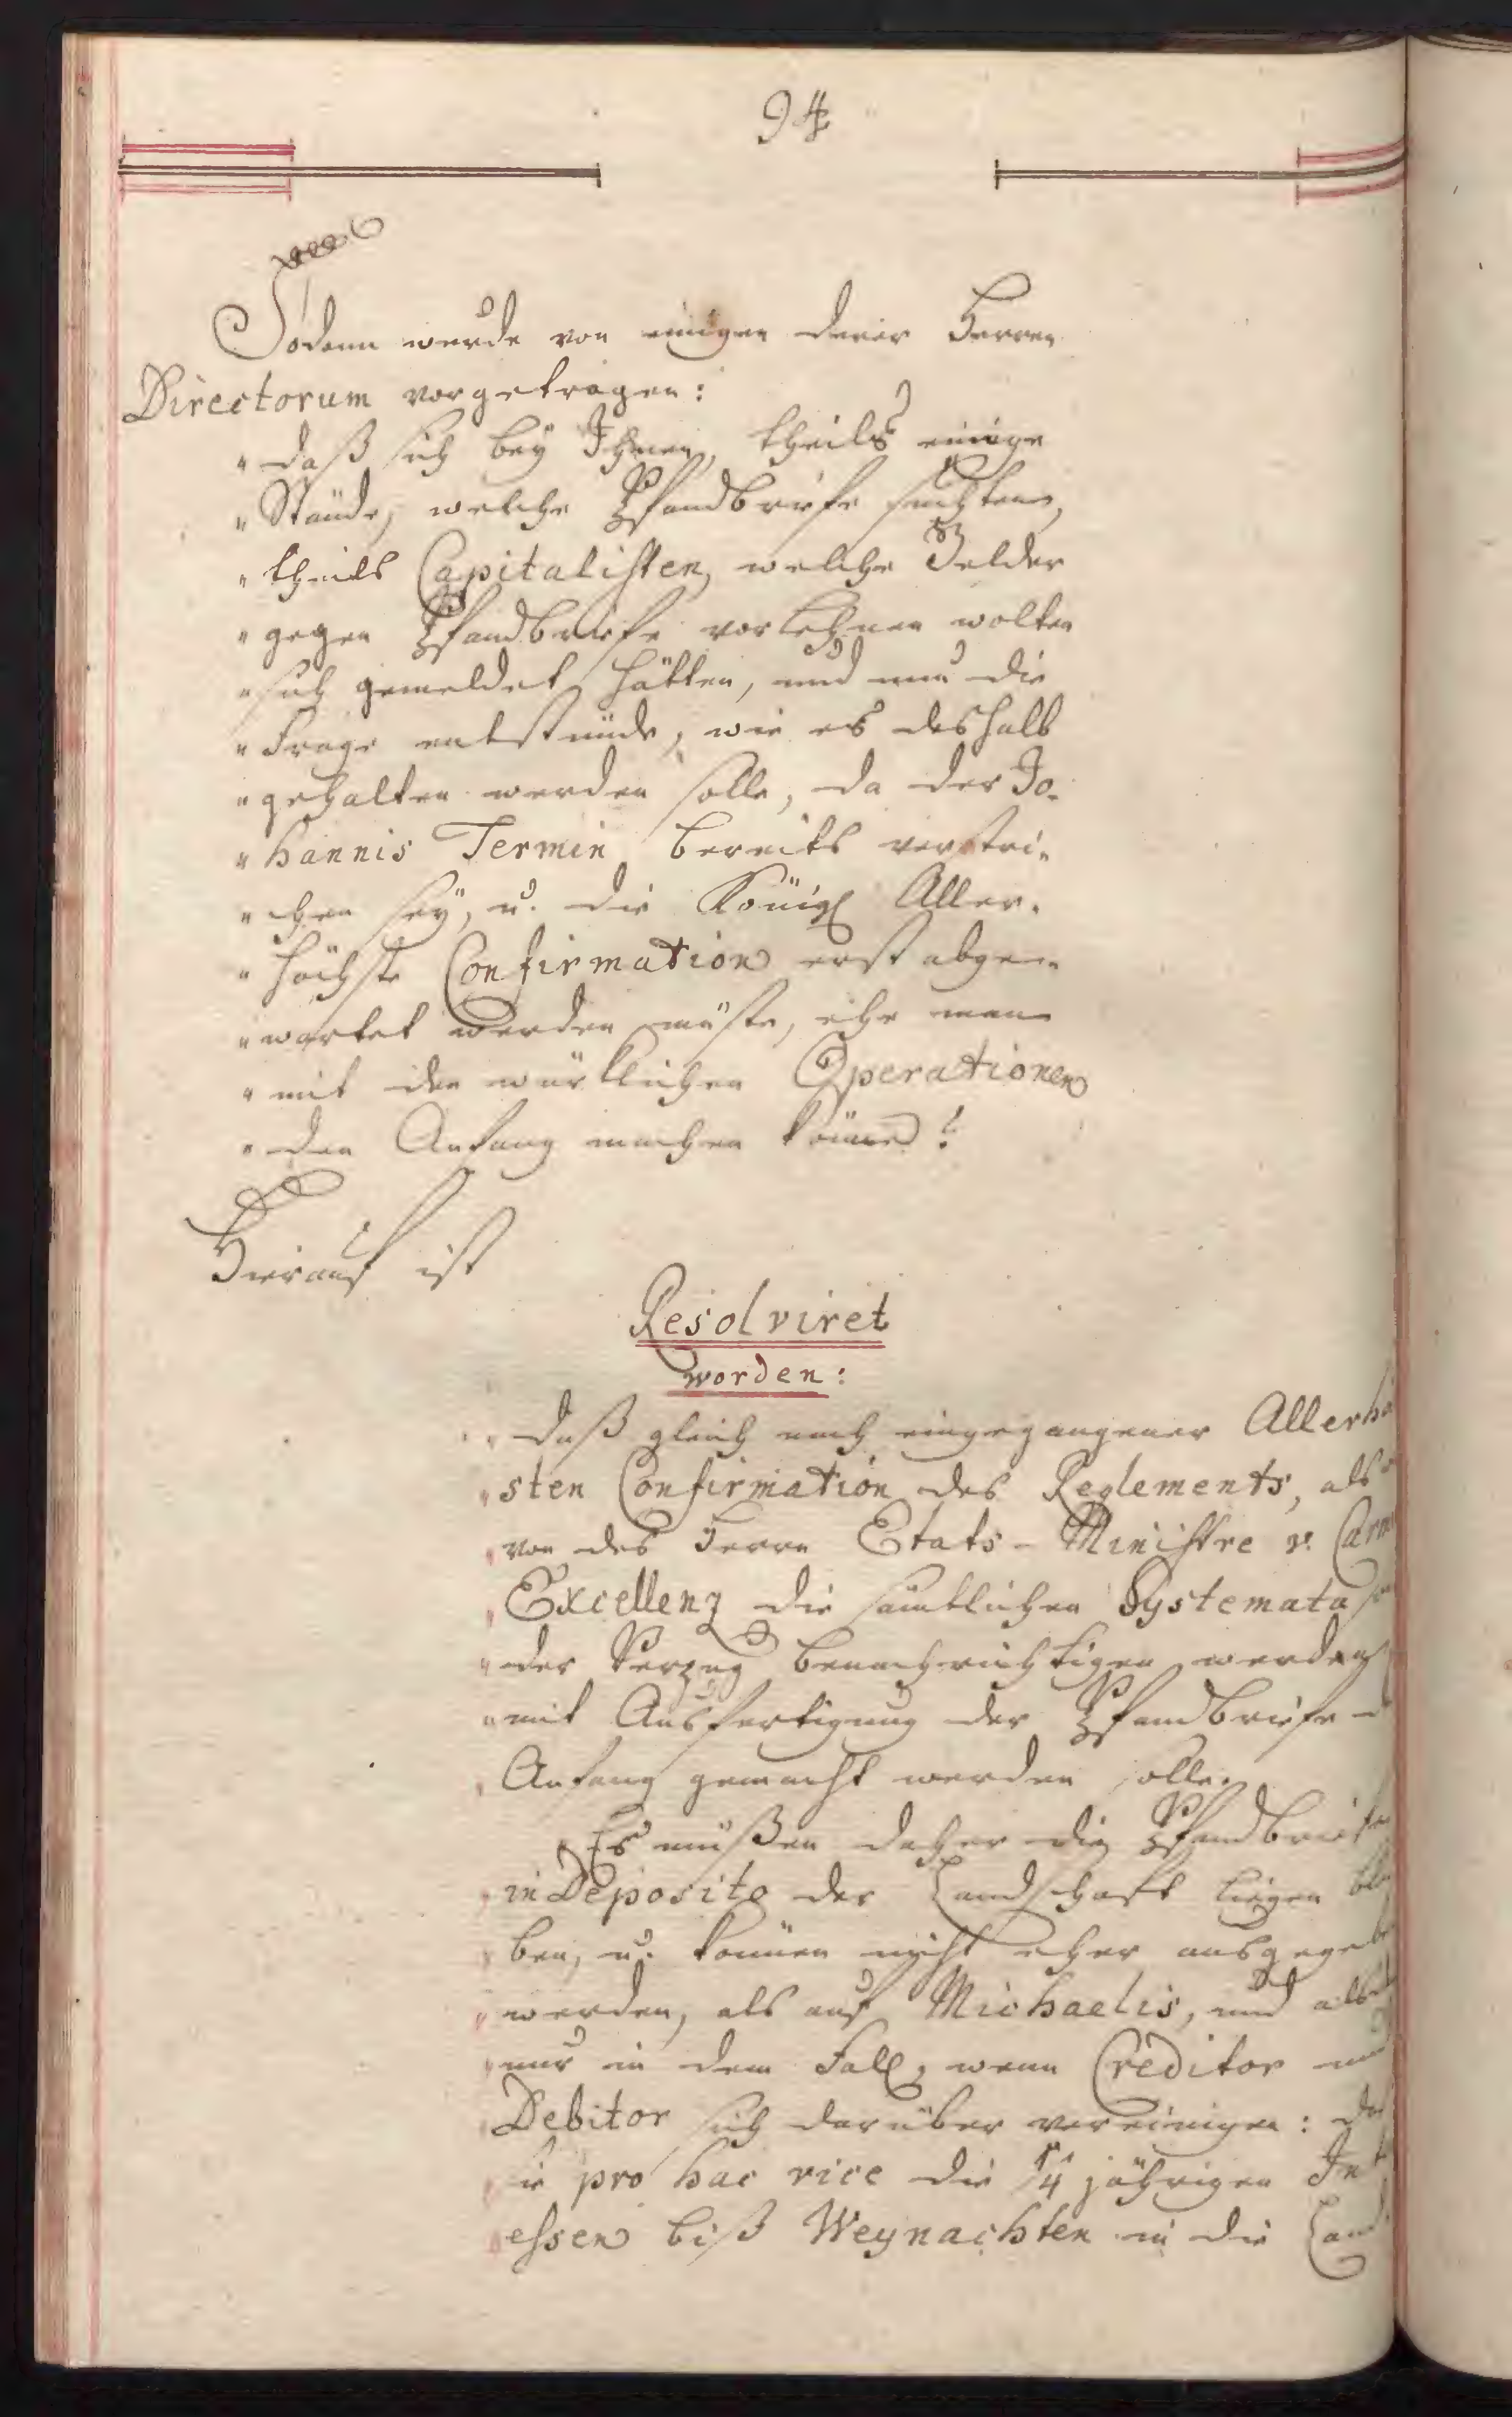 94
Sodann wurde von einigen derer Herren
Directorum vorgetragen:
" daß sich bey Ihnen, theils einige
" Stände, welche Pfandbriefe suchten,
" theils Capitalisten, welche Gelder
" gegen Pfandbriefe vorlehnen wolten
" sich gemeldet hätten, und nun die
" Frage entstünde, wie es deshalb
" gehalten werden solle, da der Jo-
" hannis Termin bereits verstri-
" chen sey, u. die Königl Aller-
" höchste Confirmation erst abge-
" wartet werden müste, ehe man
" mit den würklichen Operationen
" den Anfang machen könne?
Hierauf ist
Resolviret
worden:
" daß gleich nach eingegangener Allerhö
" sten Confirmation des Reglements, als
" von des Herrn Etats-Ministre v. Carm
" Excellenz die sämtlichen Systemata
" der Verzug benachrichtigen werden
" mit Ausfertigung der Pfandbriefe d
" Anfang gemacht werden solle.
" Es müßen daher die Pfandbriefe
" in Deposito der Landschaft liegen blei
" ben, u. können nicht eher ausgegebe
" werden, als auf Michaelis, und als
" nur in dem Fall, wenn Creditor und
" Debitor sich darüber vereinigen: daß
" sie pro hac vice die 1/4 jährigen Int
" eßen biß Weynachten in die Land